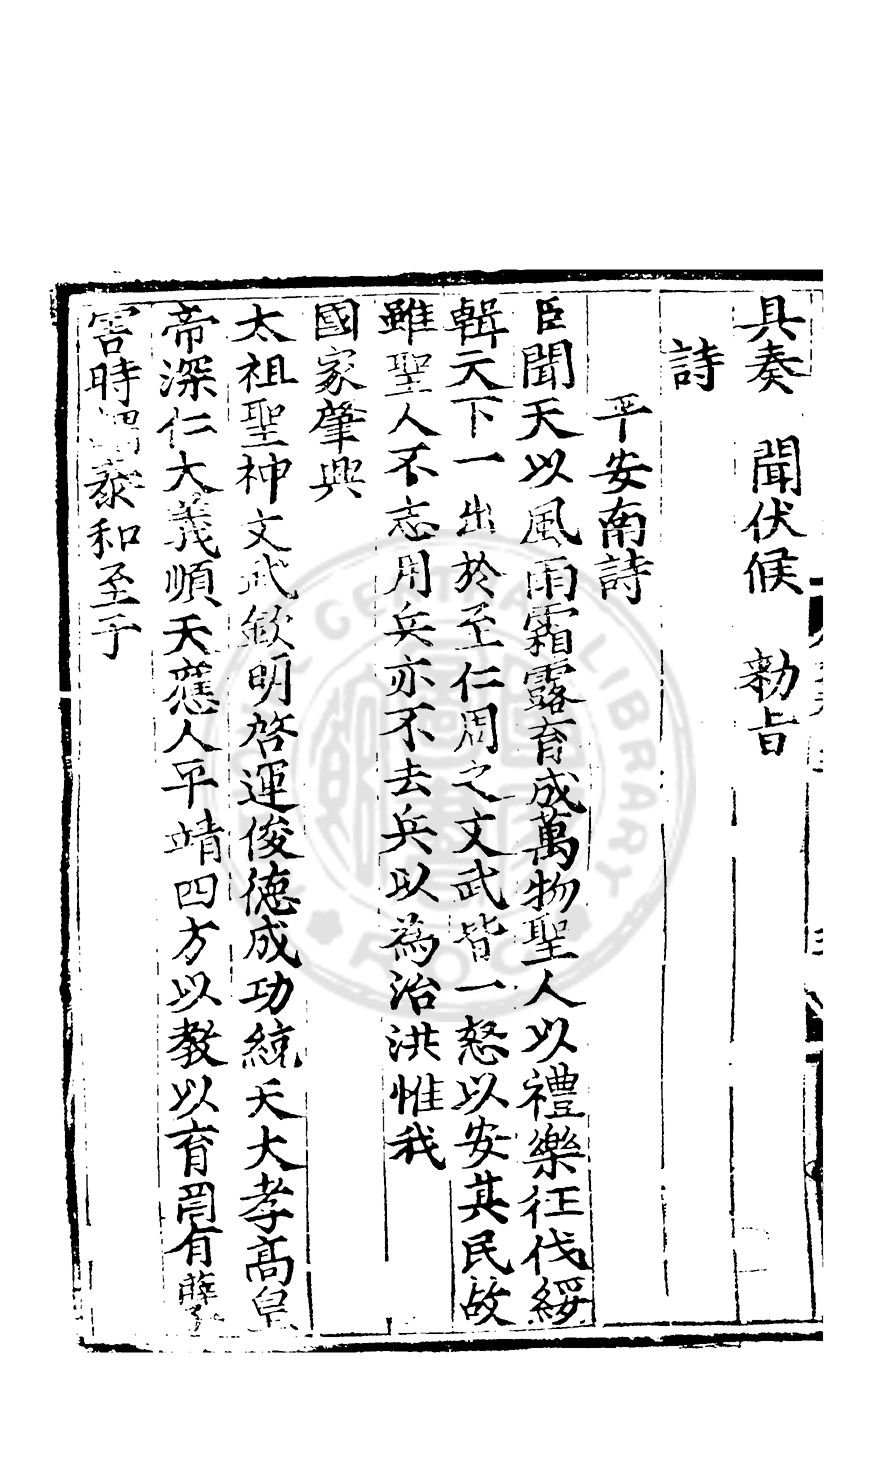 具奏　聞伏候　勑旨
詩
平安南詩
臣聞天以風雨霜露育成萬物聖人以禮樂征伐綏
輯天下一出於至仁周之文武皆一怒以安其民故
雖聖人不忘用兵亦不去兵以為治洪惟我
國家肇興
太祖聖神文武欽明啓運俊德成功統天大孝高皇
帝深仁大義順天應人平靖四方以教以育罔有孽
害時躋泰和至于
NATIONAL CENTRAL LIBRARY
R.O.C.